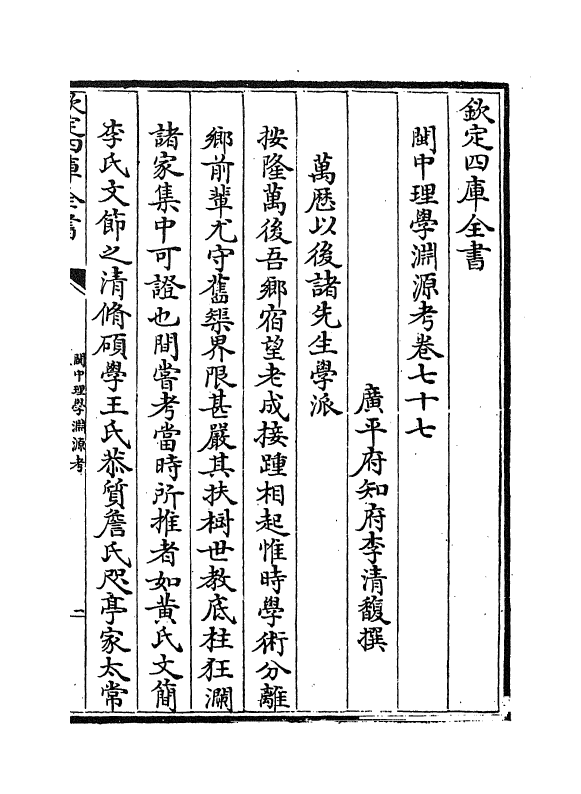 欽定四庫全書
閩中理學淵源考卷七十七
廣平府知府李清馥撰
萬厯以後諸先生學派
按隆萬後吾鄉宿望老成接踵相起惟時學術分離
鄉前輩尤守舊榘界限甚嚴其扶樹世教底柱狂瀾
諸家集中可證也間嘗考當時所推者如黄氏文簡
李氏文節之清脩碩學王氏恭質詹氏咫亭家太常
欽定四庫全書
閩中理學淵源考
二